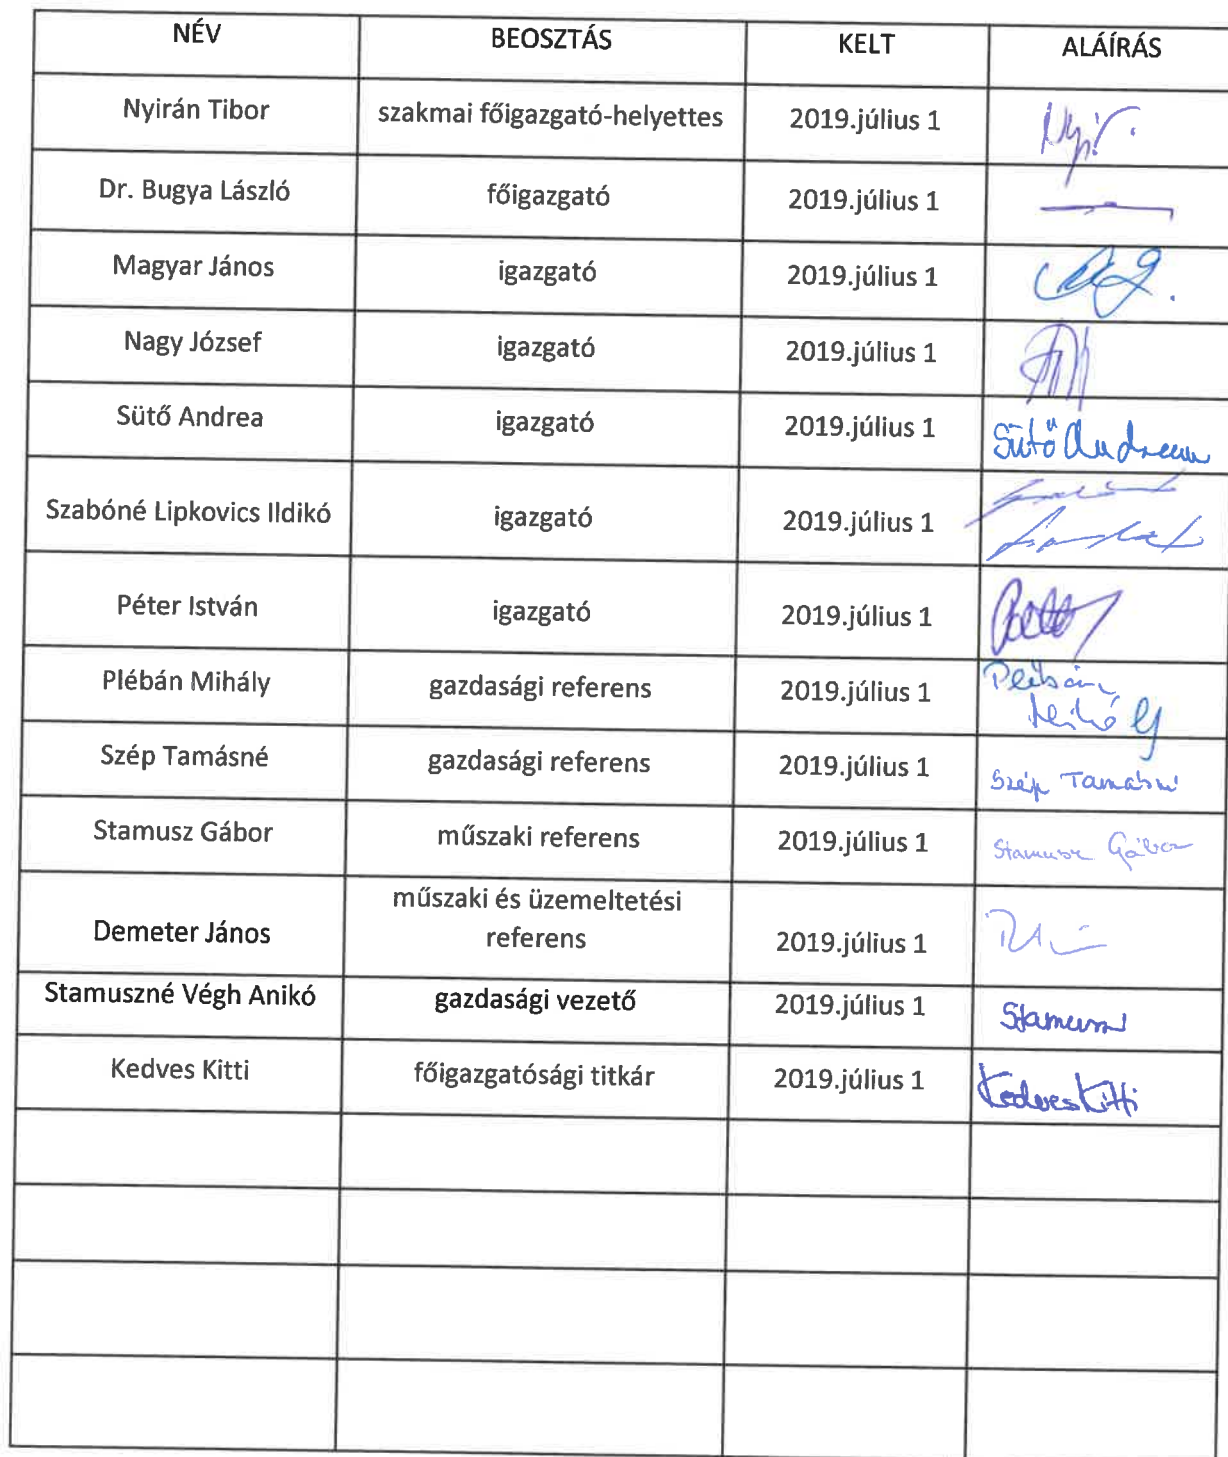 NÉV BEOSZTÁS KELT ALÁÍRÁS
Nyirán Tibor szakmai főigazgató-helyettes 2019.július 1
Dr. Bugya László főigazgató 2019.július 1
Magyar János igazgató 2019.július 1
Nagy József igazgató 2019.július 1
Sütő Andrea igazgató 2019.július 1 Sütő Andrea
Szabóné Lipkovics Ildikó igazgató 2019.július 1
Péter István igazgató 2019.július 1
Plébán Mihály gazdasági referens 2019.július 1 Plébán
Mihály
Szép Tamásné gazdasági referens 2019.július 1 Szép Tamásné
Stamusz Gábor műszaki referens 2019.július 1 Stamusz Gábor
műszaki és üzemeltetési
Demeter János referens 2019.július 1
Stamuszné Végh Anikó gazdasági vezető 2019.július 1 Stamuszné
Kedves Kitti főigazgatósági titkár 2019.július 1 Kedves Kitti